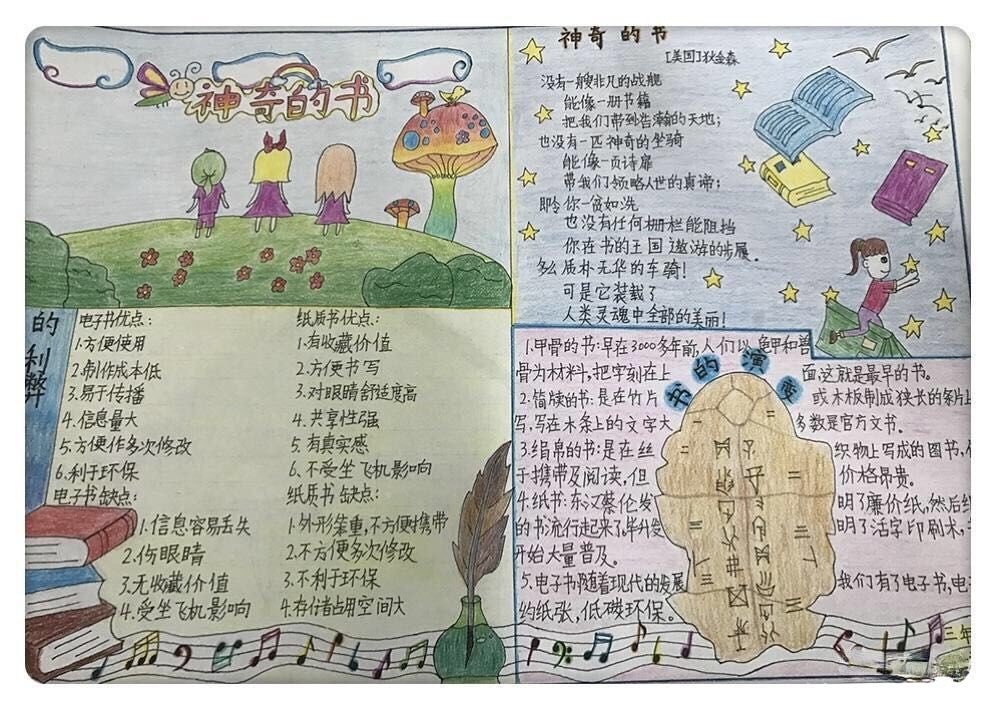 神奇的书
神奇的书
[美国]狄金森
没有一艘非凡的战舰
能像一册书籍
把我们带到浩瀚的天地；
也没有一匹神奇的坐骑
能像一页诗扉
带我们领略人世的真谛；
即令你一贫如洗
也没有任何栅栏能阻挡
你在书的王国遨游的步履。
多么质朴无华的车骑！
可是它装载了
人类灵魂中全部的美丽！
的利弊
电子书优点：
1.方便使用
2.制作成本低
3.易于传播
4.信息量大
5.方便作多次修改
6.利于环保
电子书缺点：
1.信息容易丢失
2.伤眼睛
3.无收藏价值
4.受坐飞机影响
纸质书优点：
1.有收藏价值
2.方便书写
3.对眼睛舒适度高
4.共享性强
5.有真实感
6.不受坐飞机影响
纸质书缺点：
1.外形笨重，不方便携带
2.不方便多次修改
3.不利于环保
4.存储占用空间大
书的演变
1.甲骨的书：早在3000多年前，人们以龟甲和兽
骨为材料，把字刻在上面，这就是最早的书。
2.简牍的书：是在竹片或木板制成狭长的条片上
写，写在木条上的文字大多数是官方文书。
3.绢帛的书：是在丝织物上写成的图书，
于携带及阅读，但价格昂贵。
4.纸书：东汉蔡伦发明了廉价纸，然后
的书流行起来了，毕升发明了活字印刷术，
开始大量普及。
5.电子书：随着现代的发展我们有了电子书，电
约纸张，低碳环保。
三年